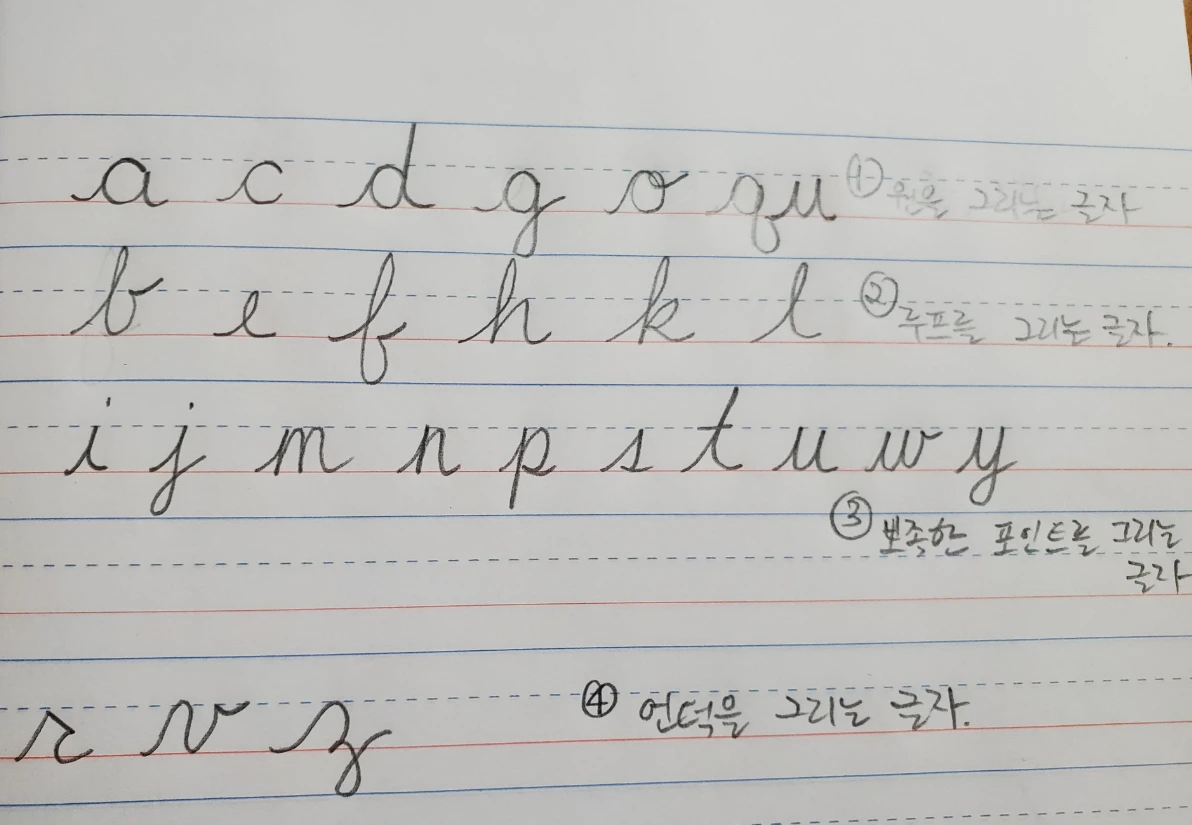 a c d g o qu ① 원을 그리는 글자
b e f h k l ② 루프를 그리는 글자.
i j m n p s t u w y
③ 뾰족한 포인트를 그리는
글자
r v z ④ 언덕을 그리는 글자.